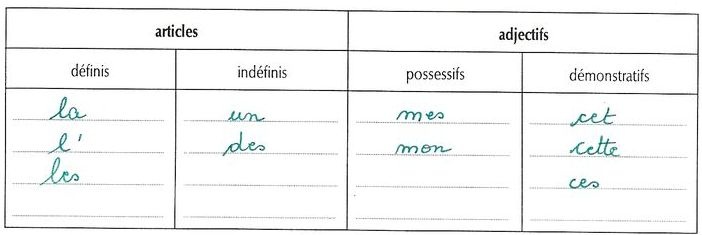 articles adjectifs
définis indéfinis possessifs démonstratifs
la un mes cet
l' des mon cette
les ces